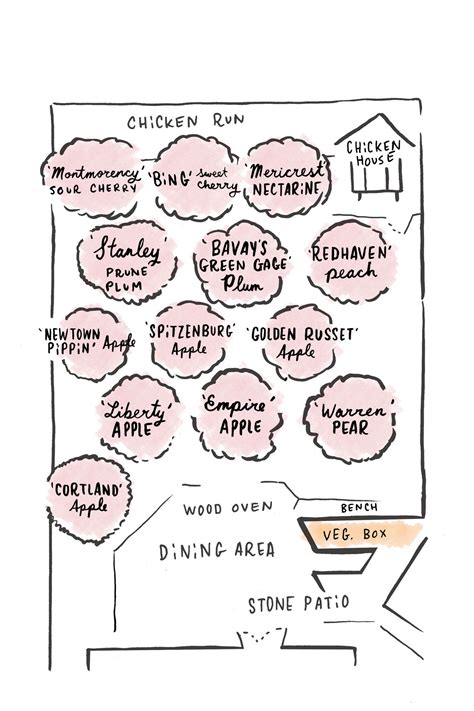 CHICKEN RUN
CHICKEN
HOUSE
'Montmorency'
SOUR CHERRY
'BING' sweet
cherry
'Mericrest'
NECTARINE
'Stanley'
PRUNE
PLUM
'BAVAY'S
GREEN GAGE'
Plum
'REDHAVEN'
peach
'NEWTOWN
PIPPIN' Apple
'SPITZENBURG'
Apple
'GOLDEN RUSSET'
Apple
'Liberty'
APPLE
'Empire'
APPLE
'Warren'
PEAR
'CORTLAND'
Apple
WOOD OVEN
BENCH
VEG. BOX
DINING AREA
STONE PATIO